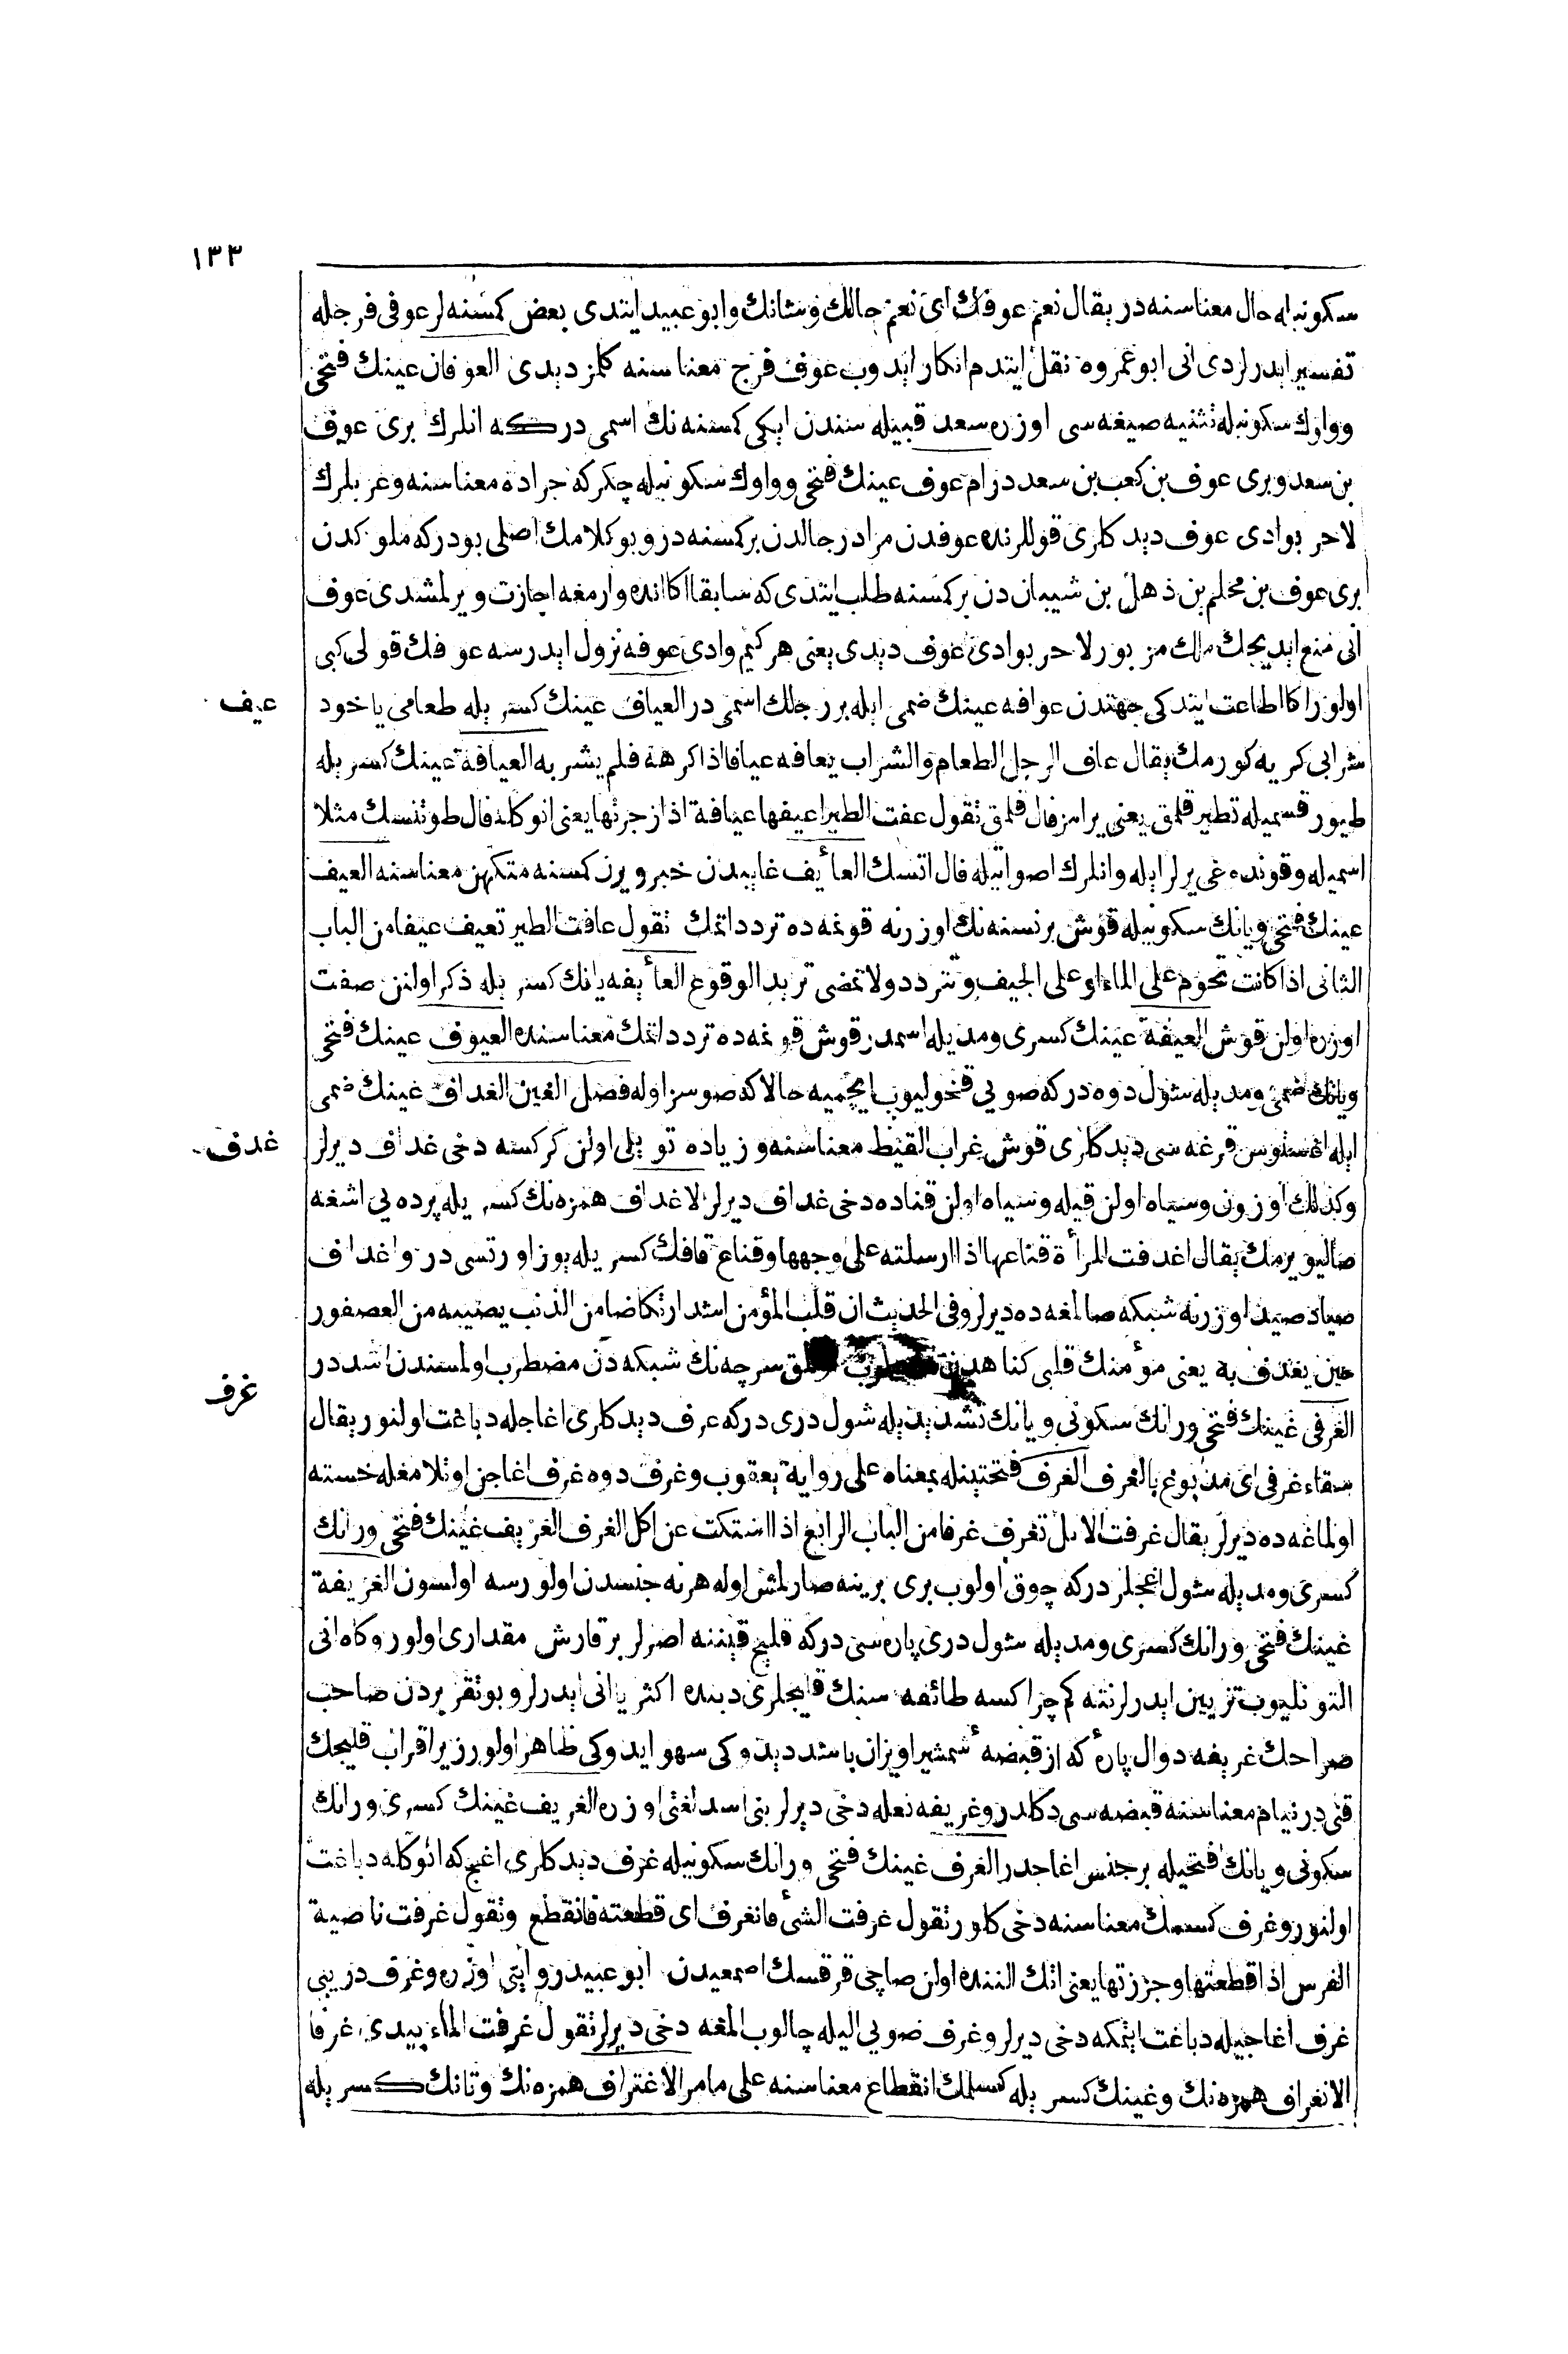 ١٣٣
سكونيله حال معناسنه در يقال نعم عوفك اى نعم حالك وشانك وابو عبيد ايتدى بعض كمسنه لر عوفى فرجله
تفسير ايدرلردى انى ابو عمروه نقل ايتدم انكار ايدوب عوف فرج معناسنه كلمز ديدى العوفان عينك فتحى
وواوك سكونيله تثنيه صيغه سى اوزره سعد قبيله سندن ايكى كمسنه نك اسمى در كه انلرك برى عوف
بن سعد وبرى عوف بن كعب بن سعد در ام عوف عينك فتحى وواوك سكونيله چكركه جراده معناسنه وعربلرك
لاحر بوادى عوف ديدكلرى قوللرنده عوفدن مراد رجالدن بر كمسنه در وبو كلامك اصلى بودركه ملوكدن
برى عوف بن محلم بن ذهل بن شيبان دن بر كمسنه طلب ايتدى كه سابقا اكا انده وارمغه اجازت ويرلمشدى عوف
انى منع ايديجك ملك مزبور لاحر بوادى عوف ديدى يعنى هر كيم وادى عوفه نزول ايدرسه عوفك قولى كبى
اولور اكا اطاعت ايتدكى جهتدن عوافه عينك ضمى ايله بر رجلك اسمى در العياف عينك كسر يله طعامى ياخود
عيف
شرابى كريه كورمك يقال عاف الرجل الطعام والشراب يعافه عيافا اذا كرهه فلم يشربه العيافة عينك كسر يله
طيور قسميله تطير قلمق يعنى يرامز فال قلمق تقول عفت الطير اعيفها عيافة اذا زجرتها يعنى انوكله فال طوتسك مثلا
اسميله وقوندوغى يرلر ايله وانلرك اصواتيله فال اتسك العأيف غايبدن خبر ويرن كمسنه متكهن معناسنه العيف
عينك فتحى ويانك سكونيله قوش بر نسنه نك اوزرنه قونمه ده تردد اتمك تقول عافت الطير تعيف عيفا من الباب
الثانى اذا كانت تحوم على الماء او على الجيف وتتردد ولا تمضى تريد الوقوع العأيفه يانك كسر يله ذكر اولنن صفت
اوزره اولن قوش العيفة عينك كسرى ومد يله اسمدر قوش قونمه ده تردد اتمك معناسنده العيوف عينك فتحى
ويانك ضمى ومد يله شول دوه در كه صويى قنحوليوب ايچميه حالا كه صوسز اوله فصل الغين الغداف غينك ضمى
ايله اغستوس قرغه سى ديدكلرى قوش غراب القيظ معناسنه وزياده تويلى اولن كركسنه دخى غداف ديرلر
غدف
وكذلك اوزون وسياه اولن قيله وسياه اولن قناده دخى غداف ديرلر الاغداف همزه نك كسر يله پرده يى اشغه
صاليويرمك يقال اغدفت المرأة قناعها اذا ارسلته على وجهها وقناع قافك كسر يله يوز اورتسى در واغداف
صياد صيد اوزرنه شبكه صالمغه ده ديرلر وفى الحديث ان قلب المؤمن اشد ارتكاضا من الذنب يصيبه من العصفور
حين يغدف به يعنى مؤمنك قلبى كناهدن سرچه نك شبكه دن مضطرب اولمسندن اشددر
غرف
الغرفى غينك فتحى ورانك سكونى ويانك تشديد يله شول درى در كه غرف ديدكلرى اغاجله دباغت اولنور يقال
سقاء غرفى اى مدبوغ بالغرف الغرف فتحتينله بمعناه على رواية يعقوب وغرف دوه غرف اغاجن اوتلامغله خسته
اولماغه ده ديرلر يقال غرفت الابل تغرف غرفا من الباب الرابع اذا اشتكت عن اكل الغرف الغريف غينك فتحى ورانك
كسرى ومد يله شول اغجلردر كه چوق اولوب برى برينه صارلمش اوله هر نه جنسدن اولورسه اولسون الغريفة
غينك فتحى ورانك كسرى ومد يله شول درى پاره سى در كه قليج قيننه اصرلر بر قارش مقدارى اولور وكاه انى
التونليوب تزيين ايدرلر نته كم چراكسه طائفه سنك قليجلرى دبنده اكثريا انى ايدرلر وبو تقريردن صاحب
صراحك غريفه دوال پارۀ كه از قبضۀ شمشير اويزان باشد ديدوكى سهو ايدوكى ظاهر اولور زيرا قراب قليجك
قنى در نيام معناسنه قبضه سى دكلدر وغريفه نعله دخى ديرلر بنى اسد لغتى اوزره الغريف غينك كسرى ورانك
سكونى ويانك فتحيله بر جنس اغاجدر الغرف غينك فتحى ورانك سكونيله غرف ديدكلرى اغج كه انوكله دباغت
اولنور وغرف كسمك معناسنه دخى كلور تقول غرفت الشئ فانغرف اى قطعته فانقطع وتقول غرفت ناصية
الفرس اذا قطعتها وجززتها يعنى اتك النده اولن صاچى قرقسك اصمعيدن ابو عبيد روايتى اوزره وغرف دريبى
غرف اغاجيله دباغت ايتمكه دخى ديرلر وغرف صويى اليله چالوب المغه دخى ديرلر تقول غرفت الماء بيدى غرفا
الانغراف همزه نك وغينك كسر يله كسلمك انقطاع معناسنه على مامر الاغتراف همزه نك وتانك كسر يله